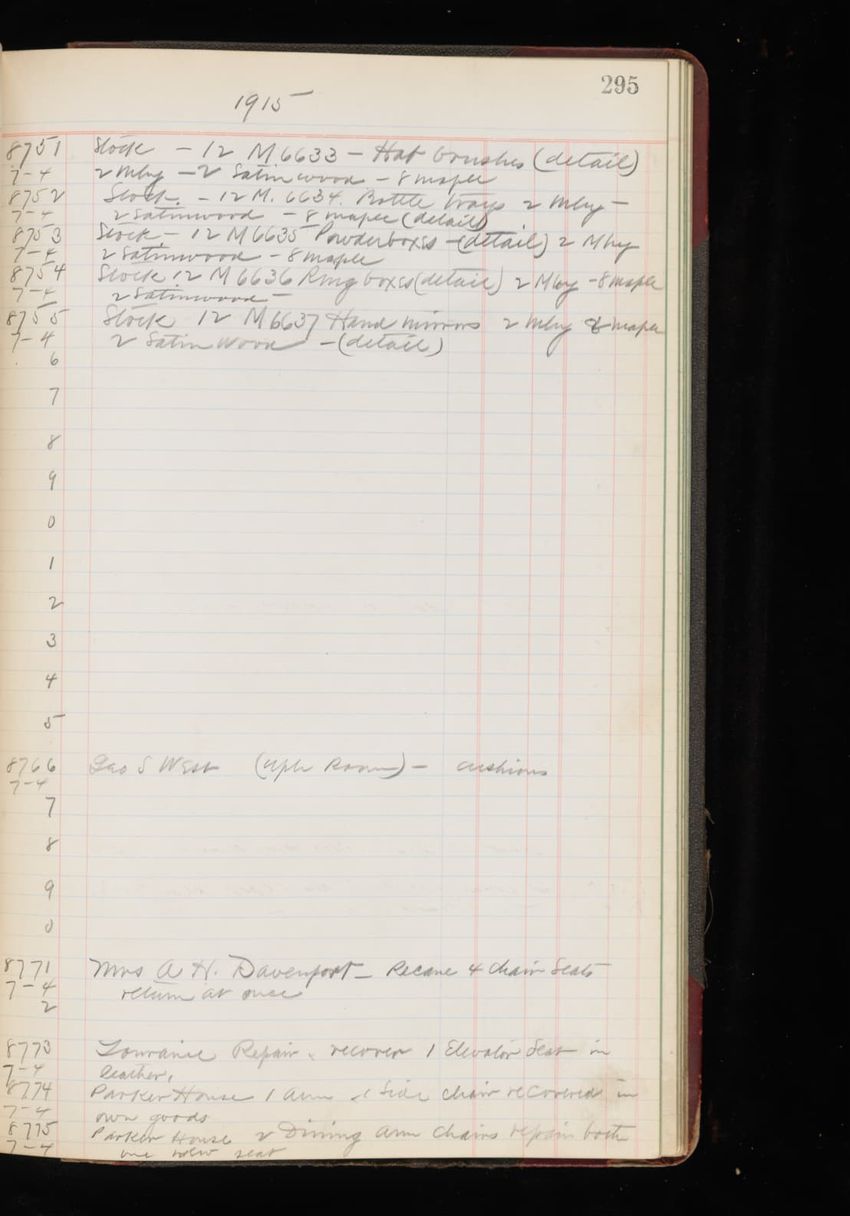 295
1915
8751 Stock - 12 M 6633 - Hat brushes (detail)
7-4 2 Mhy - 2 Satinwood - 8 maple
8752 Stock. - 12 M. 6634. Bottle trays 2 Mhy -
7-4 2 Satinwood - 8 maple (detail)
8753 Stock - 12 M 6635 Powderboxes - (detail) 2 Mhy
7-4 2 Satinwood - 8 maple
8754 Stock 12 M 6636 Ring boxes (detail) 2 Mhy - 8 maple
7-4 2 Satinwood -
8755 Stock 12 M 6637 Hand mirrors 2 Mhy 8 maple
7-4 2 Satin wood - (detail)
6
7
8
9
0
1
2
3
4
5
8766 Geo S West (Uph Room) - cushions
7-4
7
8
9
0
8771 Mrs A. H. Davenport - Recane 4 chair Seats
7-4 return at once
2
8773 Touraine Repair & recover 1 Elevator Seat in
7-4 leather.
8774 Parker House 1 arm & 1 Side chair recovered in
7-4 own goods
8775 Parker House 2 Dining arm chairs repair both
7-4 one new seat